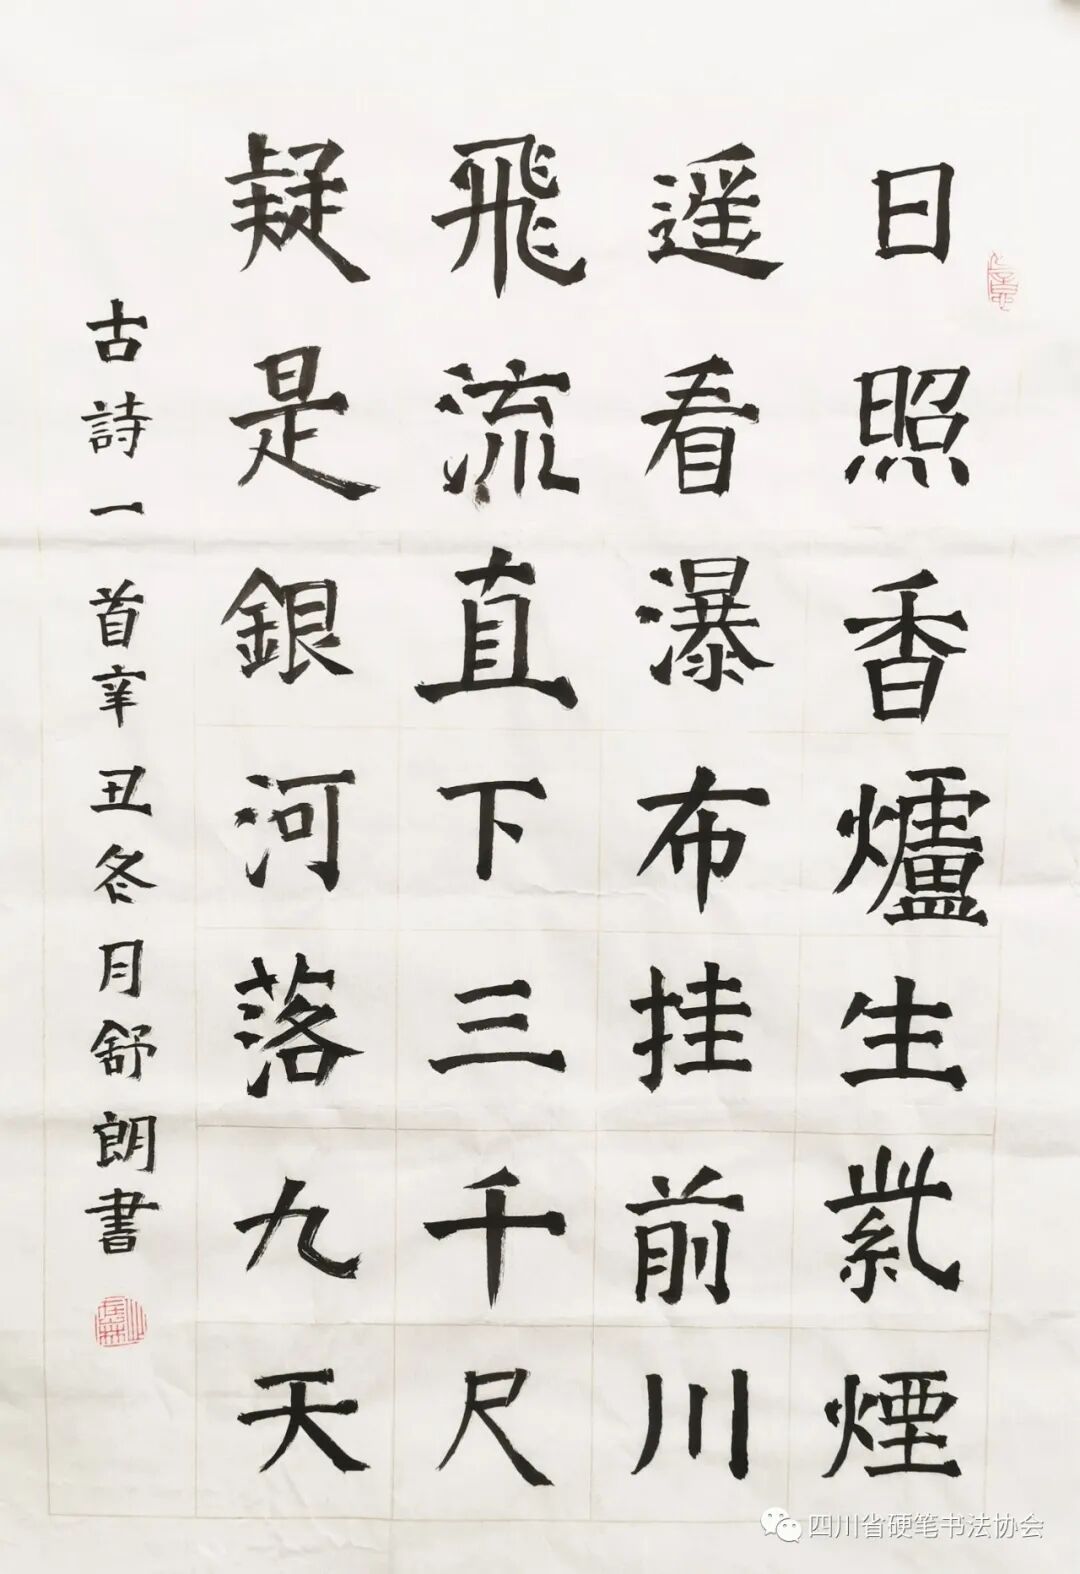 日照香爐生紫煙
遥看瀑布挂前川
飛流直下三千尺
疑是銀河落九天
古詩一首辛丑冬月舒朗書
四川省硬笔书法协会